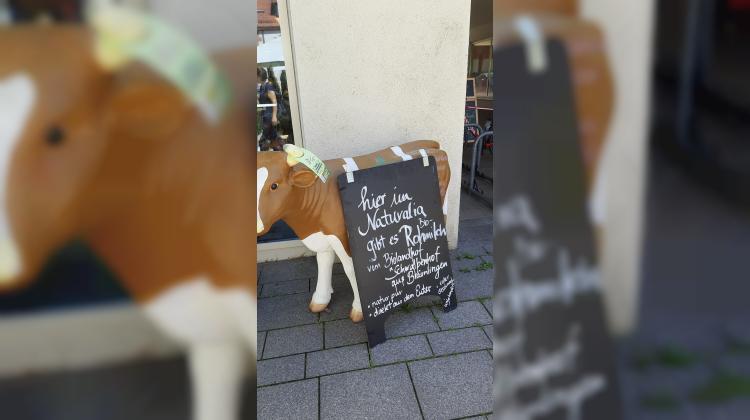 hier im
Naturalia
gibt es Bio-
Rohmilch
vom Biolandhof
"Schwalbenhof"
aus
• natur pur
• direkt aus dem Euter